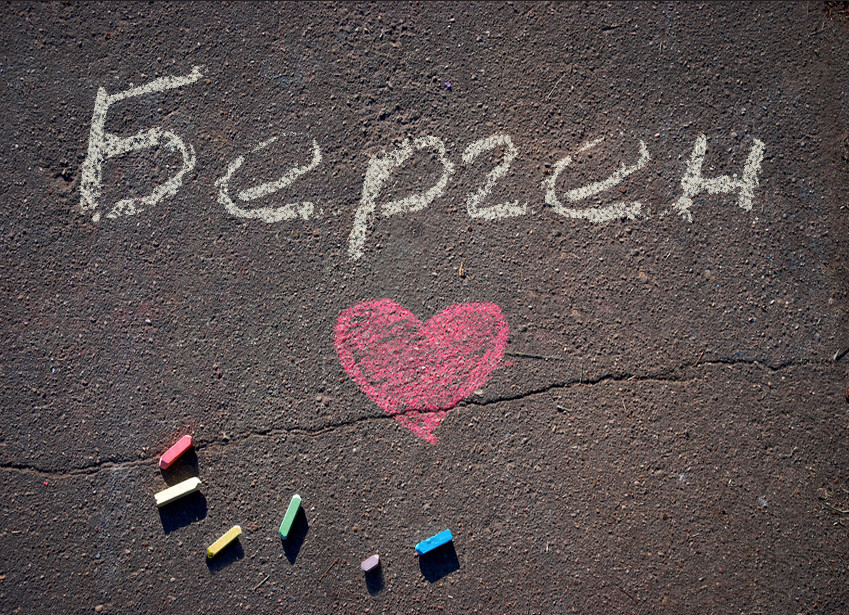 Берген